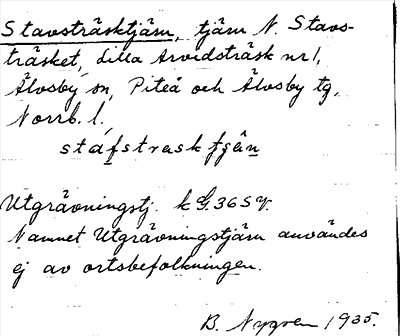 Stavsträsktjärn, tjärn N. Stavs-
träsket, Lilla Arvidsträsk nr 1,
Älvsby sn, Piteå och Älvsby tg,
Norrb. l.
stáfstrask
Utgrävningstj.
Namnet Utgrävningstjärn användes
ej av ortsbefolkningen.
B. Nygren 1935.